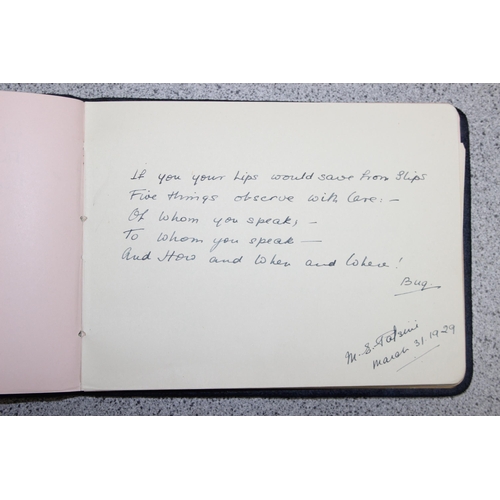 If you your Lips would save from Slips
Five things observe with Care: -
Of Whom you speak, -
To Whom you speak —
And How and When and Where!
Bug.
M. S.
March 31. 1929